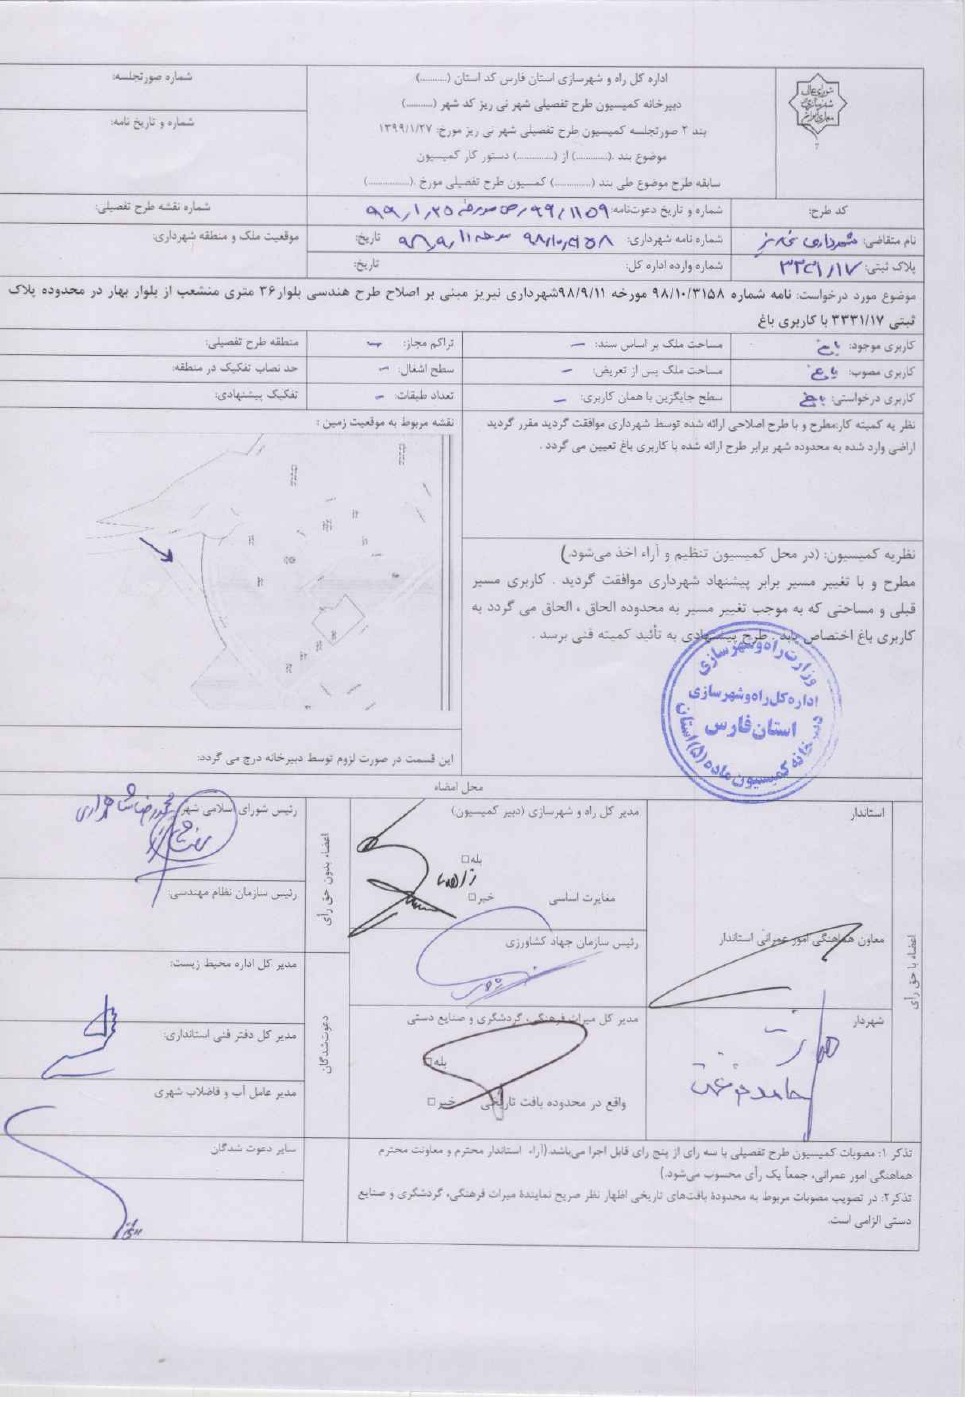 شورای عالی
شهرسازی و
معماری ایران
اداره کل راه و شهرسازی استان فارس کد استان (..........)
دبیرخانه کمیسیون طرح تفصیلی شهر نی ریز کد شهر (..........)
بند ۲ صورتجلسه کمیسیون طرح تفصیلی شهر نی ریز مورخ: ۱۳۹۹/۱/۲۷
موضوع بند .(............) از (..............) دستور کار کمیسیون
سابقه طرح موضوع طی بند (..............) کمسیون طرح تفصیلی مورخ .(..............)
شماره صورتجلسه:
شماره و تاریخ نامه:
کد طرح:
شماره و تاریخ دعوت‌نامه: ۹۹/۱۱۵۹/ص مورخه ۹۹/۱/۲۵
شماره نقشه طرح تفصیلی:
نام متقاضی: شهرداری نی‌ریز
شماره نامه شهرداری: ۹۸/۱۰/۳۱۵۸ مورخه ۹۸/۹/۱۱ تاریخ:
موقعیت ملک و منطقه شهرداری:
پلاک ثبتی: ۳۳۳۱/۱۷
شماره وارده اداره کل: تاریخ:
موضوع مورد درخواست: نامه شماره ۹۸/۱۰/۳۱۵۸ مورخه ۹۸/۹/۱۱شهرداری نیریز مبنی بر اصلاح طرح هندسی بلوار۳۶ متری منشعب از بلوار بهار در محدوده پلاک
ثبتی ۳۳۳۱/۱۷ با کاربری باغ
کاربری موجود: باغ
مساحت ملک بر اساس سند: –
تراکم مجاز: –
منطقه طرح تفصیلی:
کاربری مصوب: باغ
مساحت ملک پس از تعریض: –
سطح اشغال: –
حد نصاب تفکیک در منطقه:
کاربری درخواستی: باغ
سطح جایگزین با همان کاربری: –
تعداد طبقات: –
تفکیک پیشنهادی:
نظر یه کمیته کار:مطرح و با طرح اصلاحی ارائه شده توسط شهرداری موافقت گردید مقرر گردید
اراضی وارد شده به محدوده شهر برابر طرح ارائه شده با کاربری باغ تعیین می گردد .
نقشه مربوط به موقعیت زمین :
نظریه کمیسیون: (در محل کمیسیون تنظیم و آراء اخذ می‌شود.)
مطرح و با تغییر مسیر برابر پیشنهاد شهرداری موافقت گردید . کاربری مسیر
قبلی و مساحتی که به موجب تغییر مسیر به محدوده الحاق ، الحاق می گردد به
کاربری باغ اختصاص یابد . طرح پیشنهادی به تأئید کمیته فنی برسد .
وزارت راه و شهرسازی
اداره کل راه و شهرسازی
استان فارس
دبیرخانه کمیسیون ماده (۵) استان
این قسمت در صورت لزوم توسط دبیرخانه درج می گردد:
محل امضاء
اعضاء با حق رأی
استاندار
معاون هماهنگی امور عمرانی استاندار
شهردار
مدیر کل راه و شهرسازی (دبیر کمیسیون)
بله□
مغایرت اساسی خیر□
رئیس سازمان جهاد کشاورزی
مدیر کل میراث فرهنگی، گردشگری و صنایع دستی
بله□
واقع در محدوده بافت تاریخی خیر□
اعضاء بدون حق رأی
رئیس شورای اسلامی شهر
رئیس سازمان نظام مهندسی:
دعوت‌شدگان
مدیر کل اداره محیط زیست:
مدیر کل دفتر فنی استانداری:
مدیر عامل آب و فاضلاب شهری
سایر دعوت شدگان
تذکر ۱: مصوبات کمیسیون طرح تفصیلی با سه رای از پنج رای قابل اجرا می‌باشد.(آراء استاندار محترم و معاونت محترم
هماهنگی امور عمرانی، جمعاً یک رأی محسوب می‌شود.)
تذکر۲: در تصویب مصوبات مربوط به محدودهٔ بافت‌های تاریخی اظهار نظر صریح نمایندهٔ میراث فرهنگی، گردشگری و صنایع
دستی الزامی است.